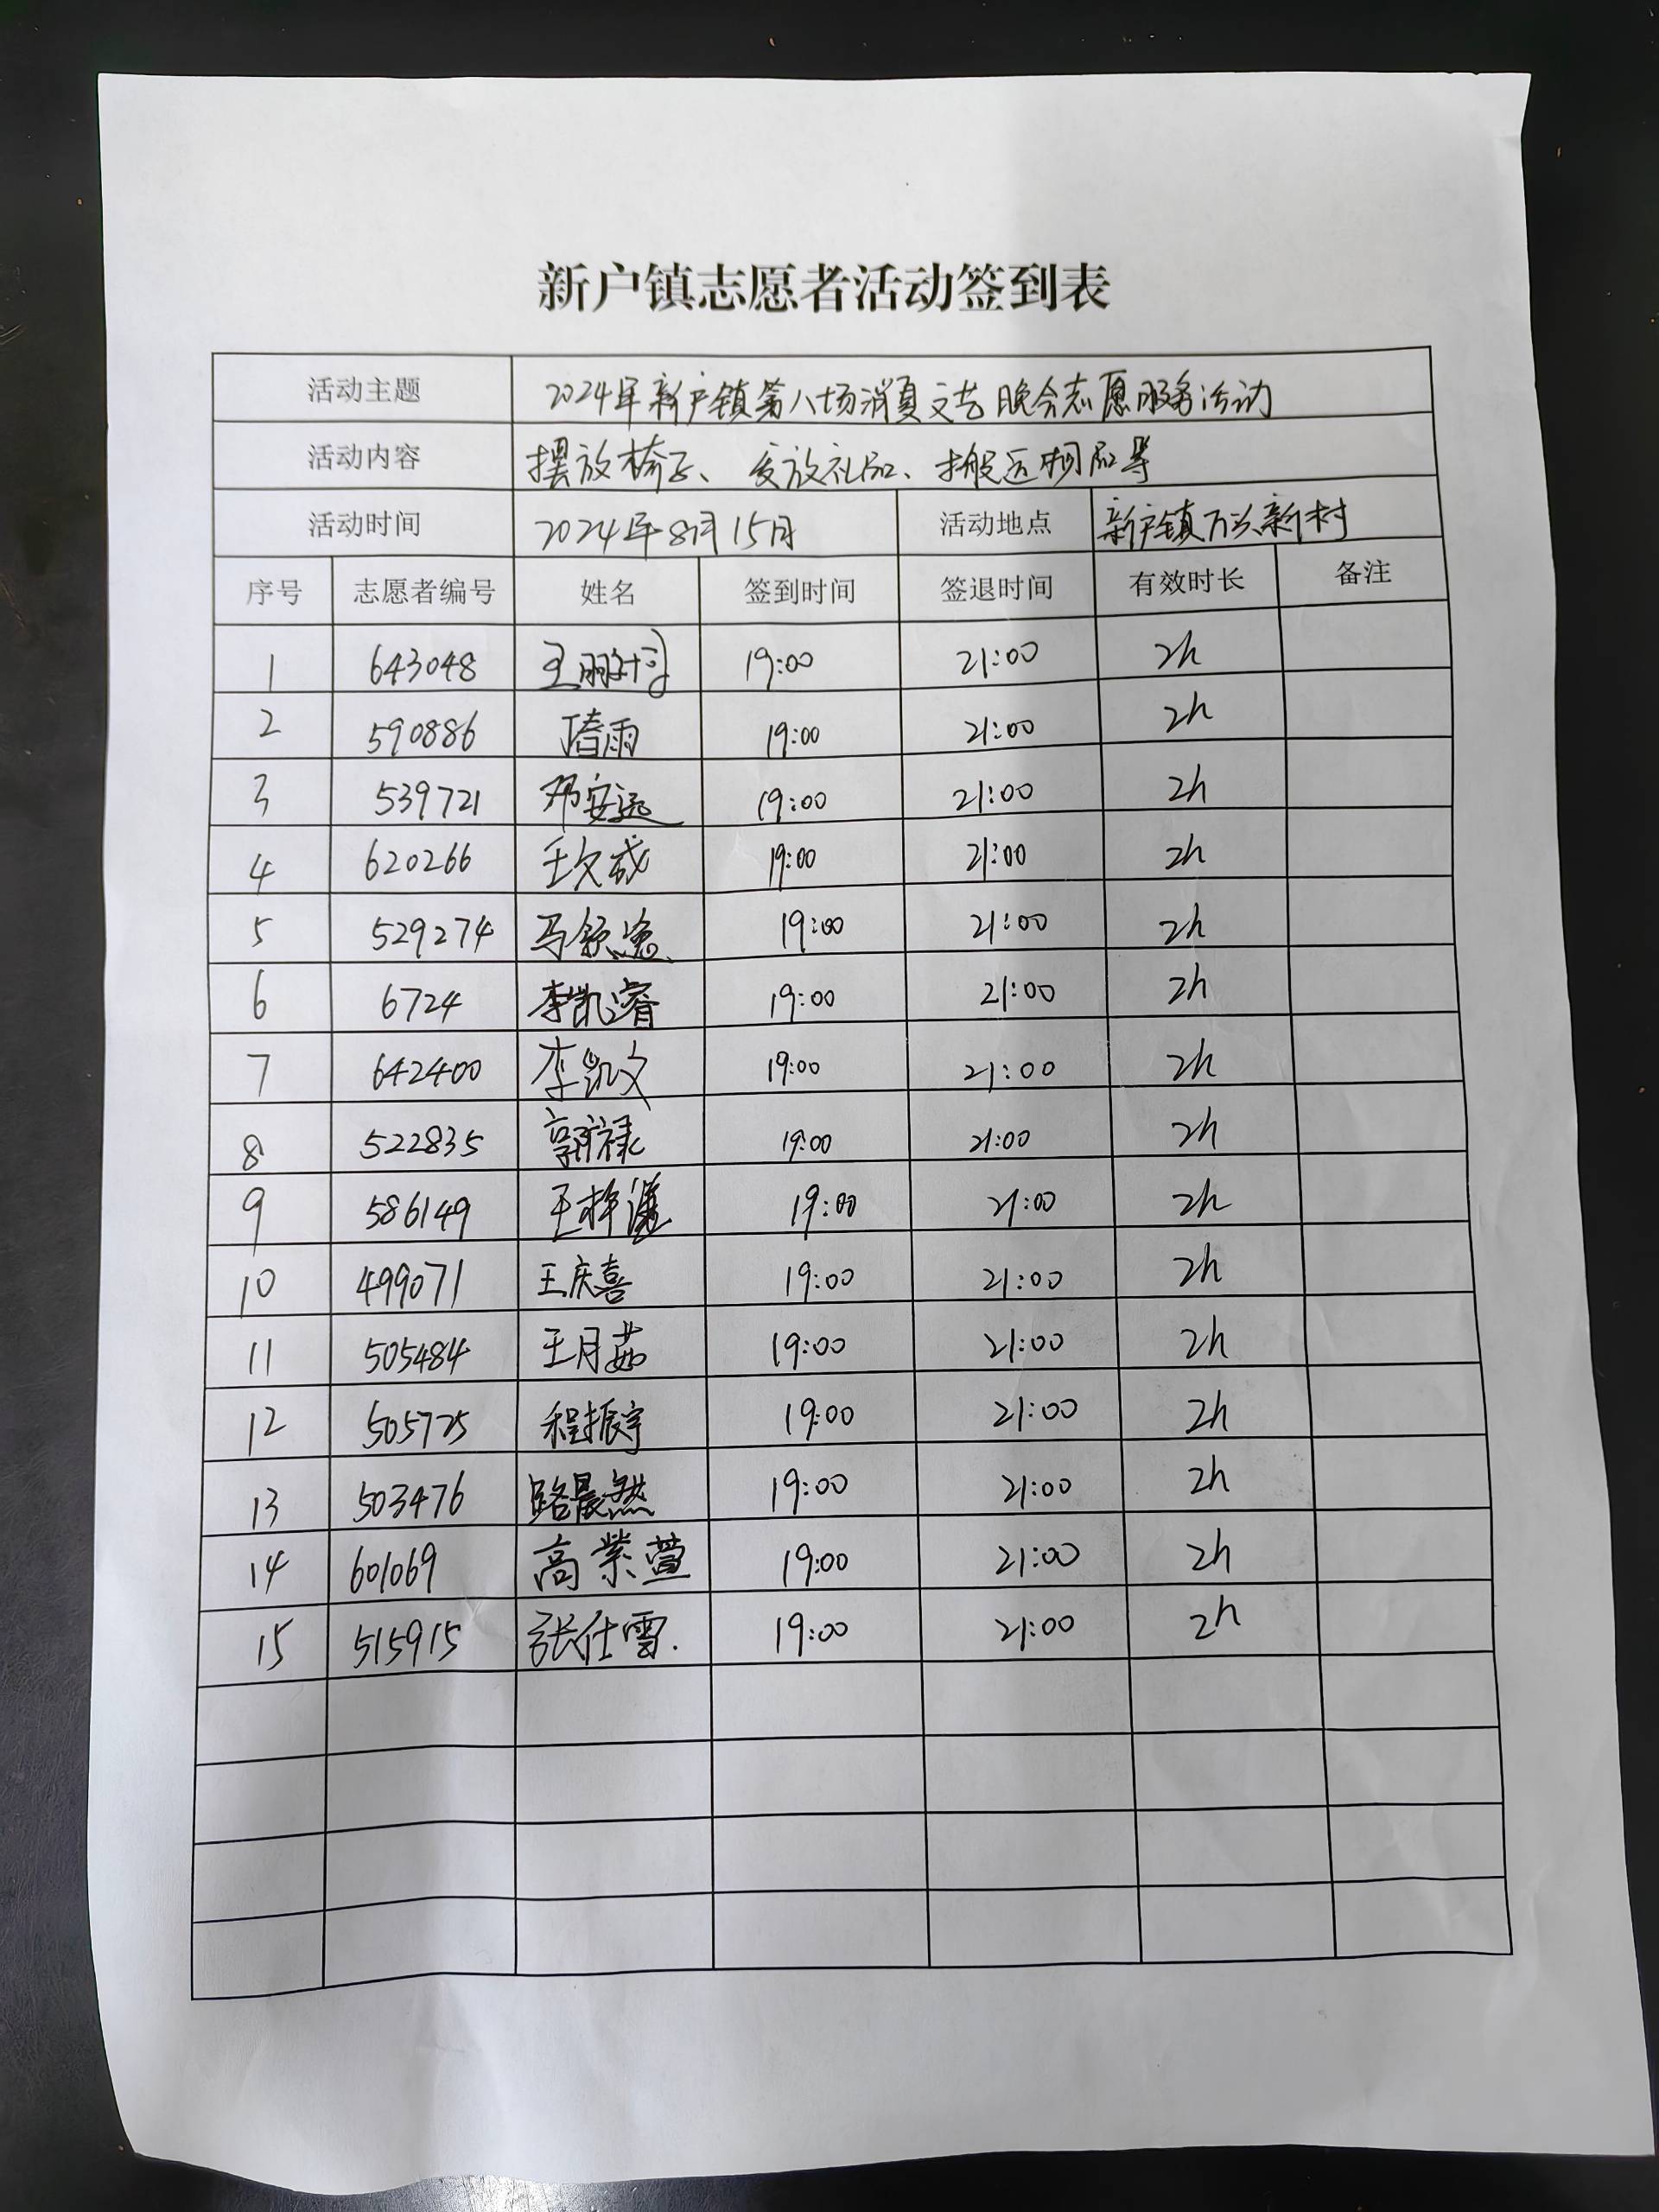 新户镇志愿者活动签到表
活动主题 2024年新户镇第八场消夏文艺晚会志愿服务活动
活动内容 摆放椅子、发放礼品、搬运物品等
活动时间 2024年8月15日 活动地点 新户镇万头新村
序号 志愿者编号 姓名 签到时间 签退时间 有效时长 备注
1 643048 19:00 21:00 2h
2 590886 雨 19:00 21:00 2h
3 539721 邓安远 19:00 21:00 2h
4 620266 王文成 19:00 21:00 2h
5 529274 马 19:00 21:00 2h
6 6724 李凯睿 19:00 21:00 2h
7 642400 李凯文 19:00 21:00 2h
8 522835 19:00 21:00 2h
9 586149 王梓 19:00 21:00 2h
10 499071 王庆喜 19:00 21:00 2h
11 505484 王月茹 19:00 21:00 2h
12 505725 程振宇 19:00 21:00 2h
13 503476 路晨然 19:00 21:00 2h
14 601069 高紫萱 19:00 21:00 2h
15 515915 张仕雪. 19:00 21:00 2h